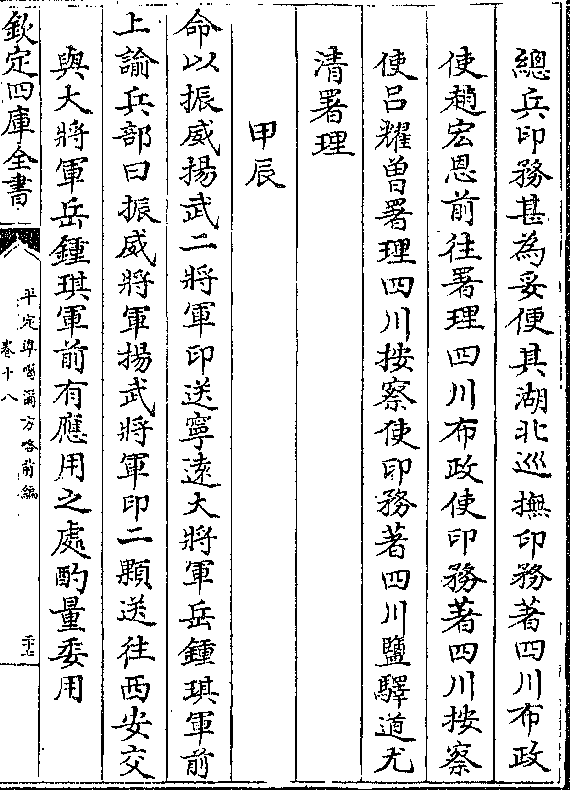 總兵印務甚為妥便其湖北巡撫印務著四川布政
使趙宏恩前往署理四川布政使印務著四川按察
使吕耀曽署理四川按察使印務著四川鹽驛道尤
清署理
甲辰
命以振威揚武二將軍印送寧逺大將軍岳鍾琪軍前
上諭兵部曰振威將軍揚武將軍印二顆送往西安交
與大將軍岳鍾琪軍前有應用之處酌量委用
欽定四庫全書
平定準噶爾方略前編
卷十八